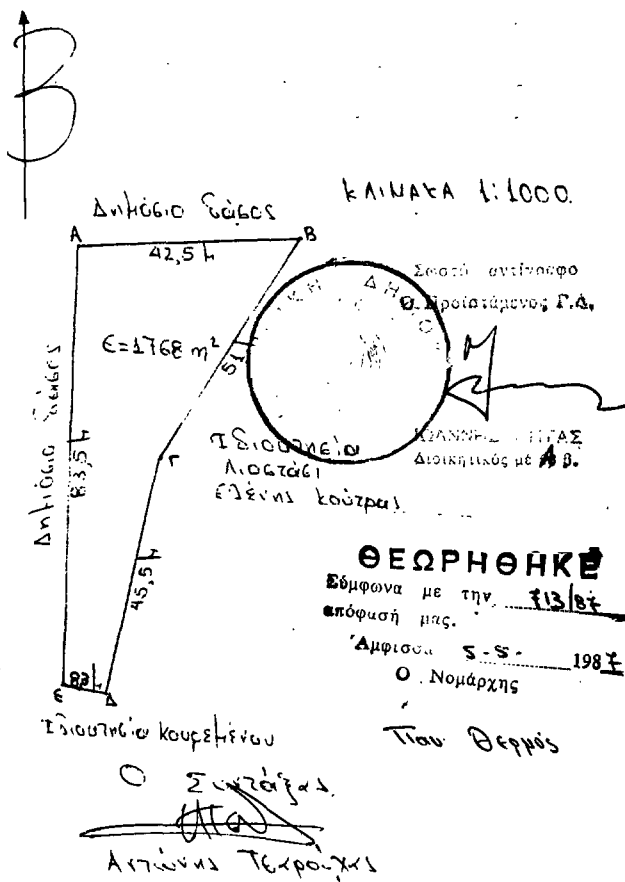 Β
ΚΛΙΜΑΚΑ 1:1000.
Δημόσιο δάσος
Α
Β
42,5 μ
Σωστό αντίγραφο
Ο Προϊστάμενος Γ.Δ.
ΙΚΗ ΔΗΜΟ
Ε=1768 m²
51 μ
Δημόσιο δάσος
83,5 μ
Γ
Ιδιοκτησία
Λιοστάσι
Ελένης Κούτρας
ΙΩΑΝΝΗΣ
Διοικητικός με Α β.
45,5 μ
ΘΕΩΡΗΘΗΚΕ
Σύμφωνα με την 713/87
απόφασή μας.
Άμφισσα 5-5- 1987
Ο Νομάρχης
Ε
8,3 μ
Δ
Ιδιοκτησία Κουρεμένου
Παν Θερμός
Ο Συντάξας
Αντώνης